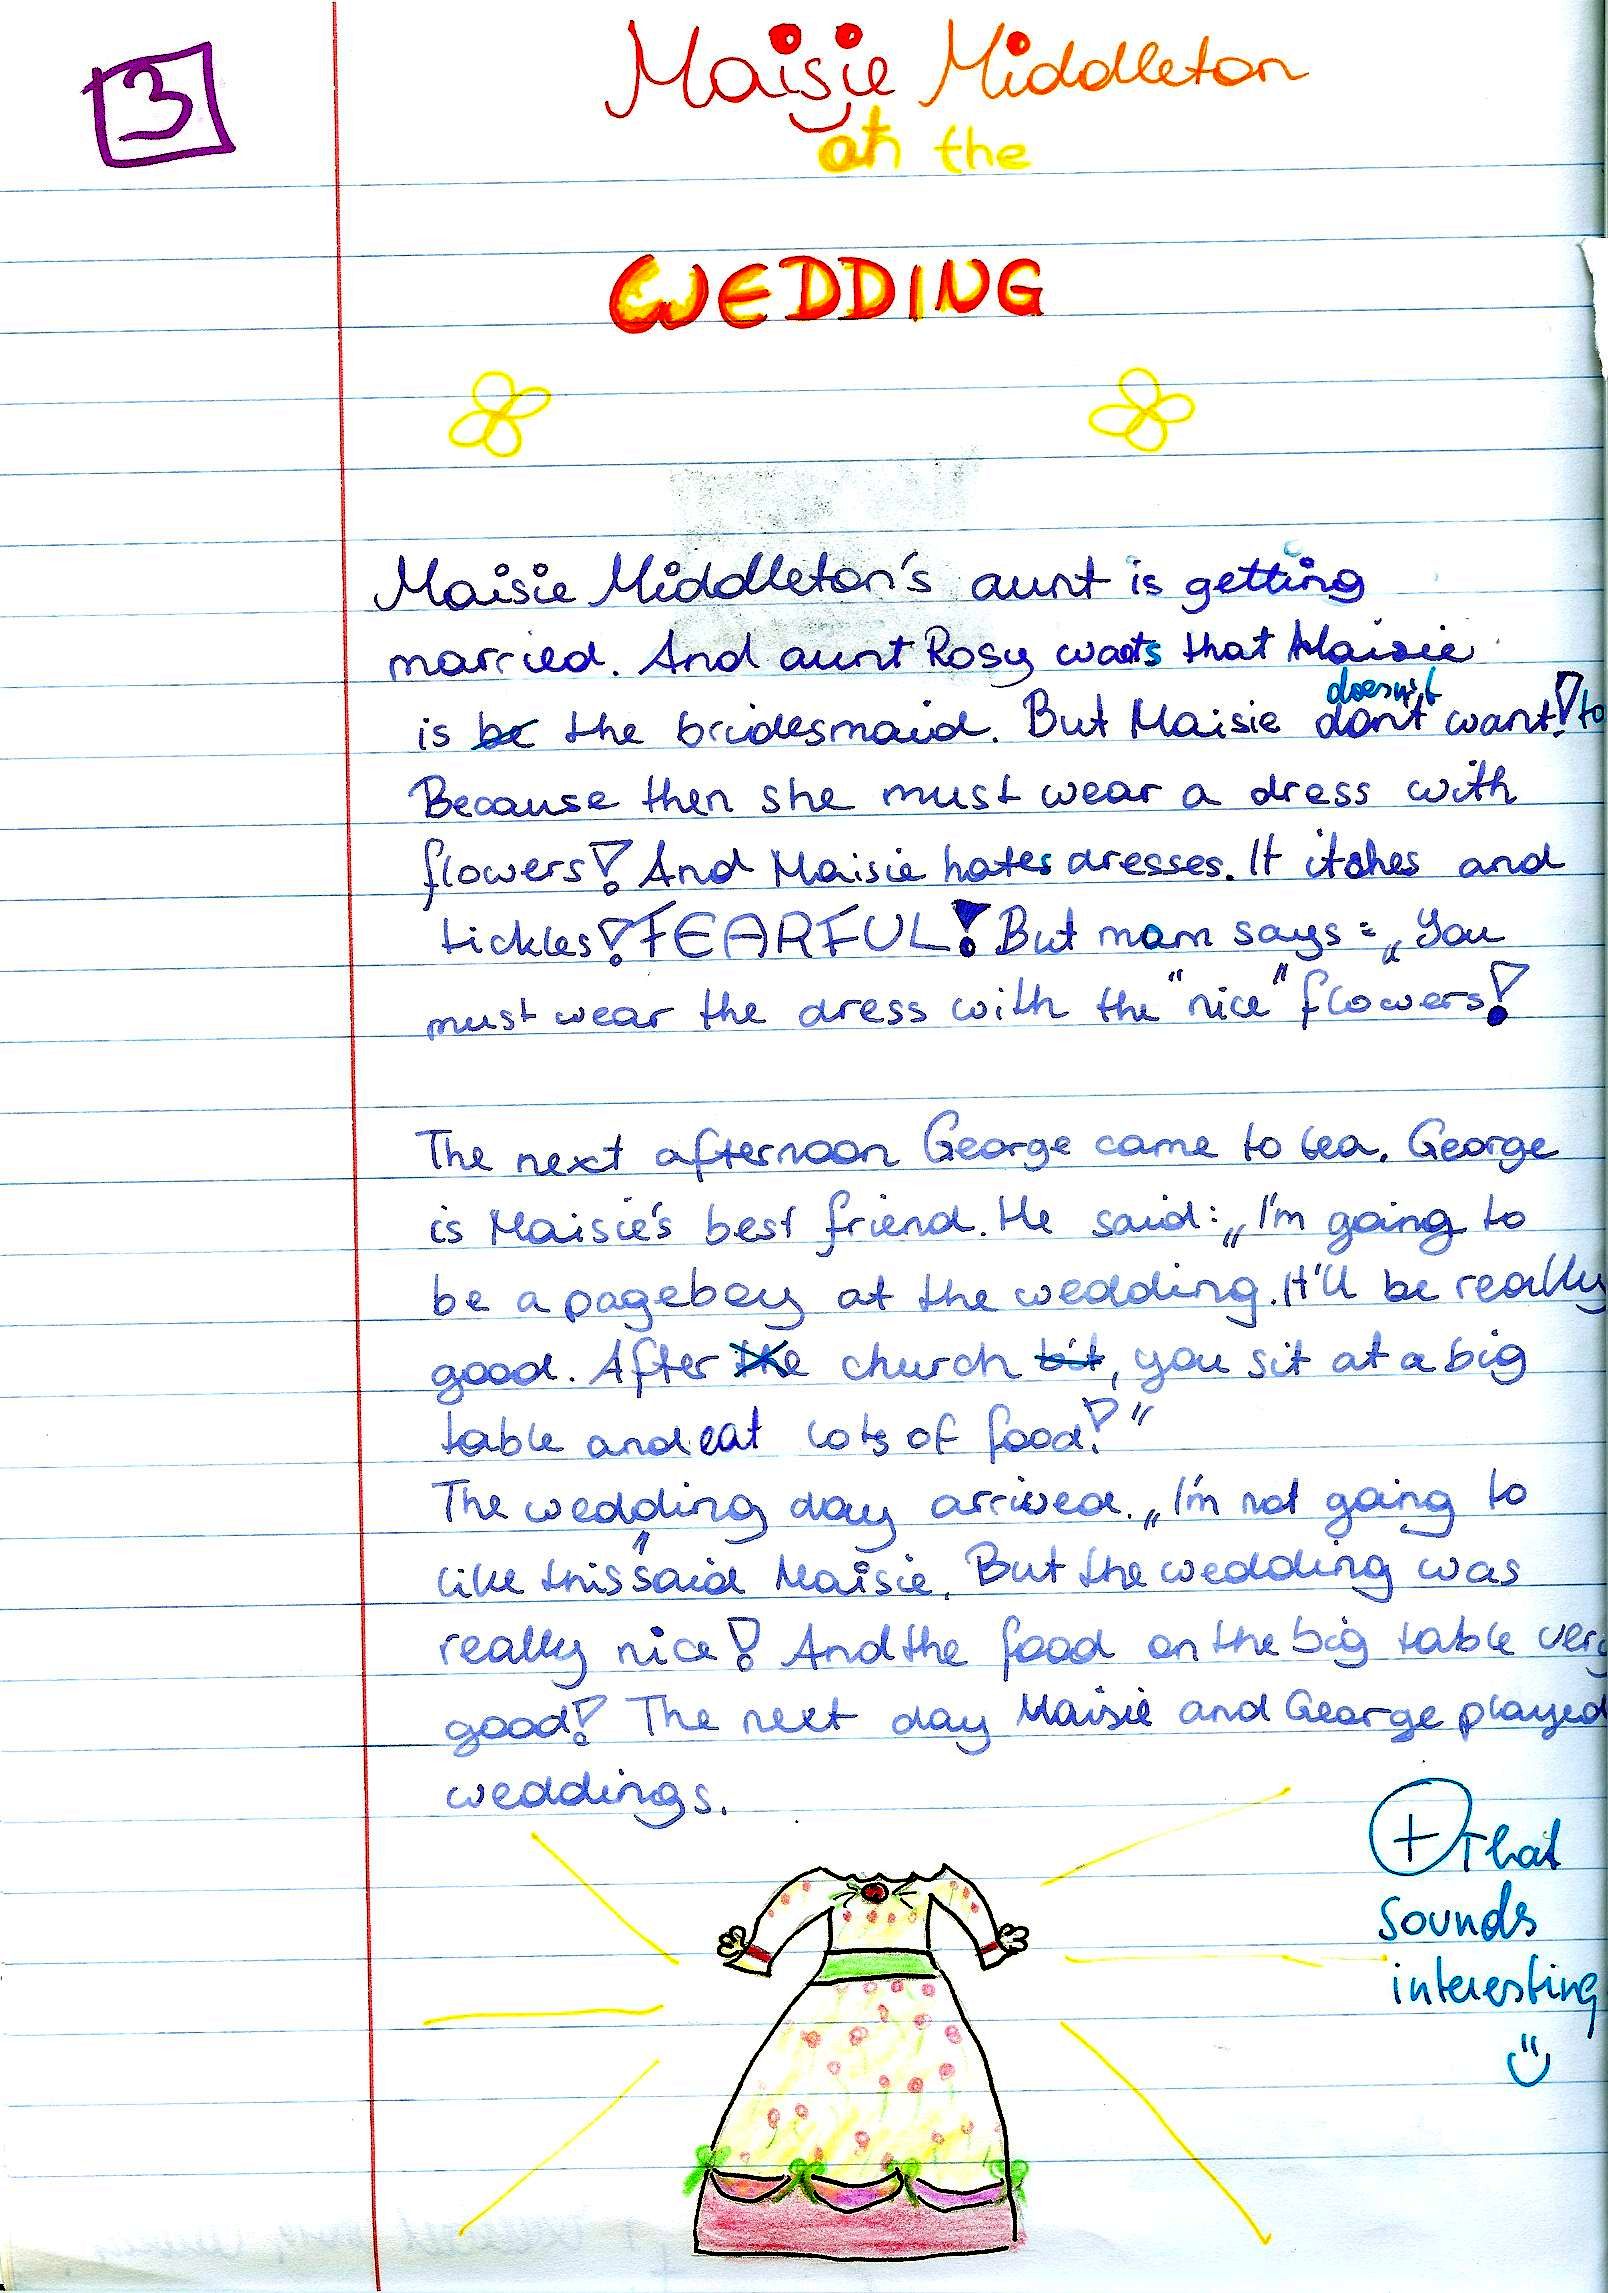 3
Maisie Middleton
at the
WEDDING
Maisie Middleton's aunt is getting
married. And aunt Rosy wants that Maisie
is be the bridesmaid. But Maisie don't doesn't want! to
Because then she must wear a dress with
flowers! And Maisie hates dresses. It itches and
tickles! FEARFUL! But mam says: „You
must wear the dress with the "nice" flowers!
The next afternoon George came to tea. George
is Maisie's best friend. He said: „I'm going to
be a pageboy at the wedding. It'll be really
good. After the church bit, you sit at a big
table and eat lots of food!"
The wedding day arrived. „I'm not going to
like this" said Maisie. But the wedding was
really nice! And the food on the big table very
good! The next day Maisie and George played
weddings.
+ That
sounds
interesting